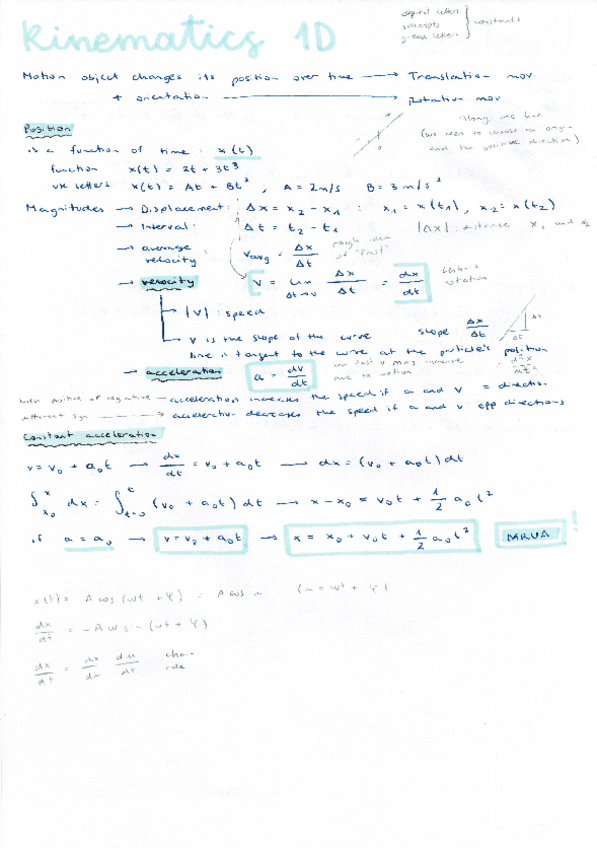 Kinematics 1D
capital letters
subscripts } constants
greek letters
Motion object changes its position over time → Translation mov
+ orientation → Rotation mov
Position
along the line
is a function of time : x(t)
(we need to choose an origin
and the positive direction)
0
function x(t) = 2t + 3t³
use letters x(t) = At + Bt³ , A = 2m/s B = 3 m/s³
Magnitudes → Displacement : Δx = x₂ - x₁ : x₁ = x(t₁) , x₂ = x(t₂)
→ Interval : Δt = t₂ - t₁ |Δx| : distance x₁ and x₂
→ average velocity v_avg = Δx/Δt rough idea of "fast"
→ velocity v = lim Δt→0 Δx/Δt = dx/dt
→ |v| : speed
→ v is the slope of the curve slope Δx/Δt
line is tangent to the curve at the particle's position
→ acceleration a = dv/dt
both positive or negative → acceleration increases the speed if a and v = direction
different sign → acceleration decreases the speed if a and v opp directions
Constant acceleration
v = v₀ + a₀t → dx/dt = v₀ + a₀t → dx = (v₀ + a₀t) dt
∫ₓ₀ˣ dx = ∫ₜ₌₀ᵗ (v₀ + a₀t) dt → x - x₀ = v₀t + 1/2 a₀t²
if a = a₀ → v = v₀ + a₀t → x = x₀ + v₀t + 1/2 a₀t² MRUA !
x(t) = A cos (ωt + φ) = A cos u (u = ωt + φ)
dx/dt = -Aω sin (ωt + φ)
dx/dt = dx/du du/dt chain rule